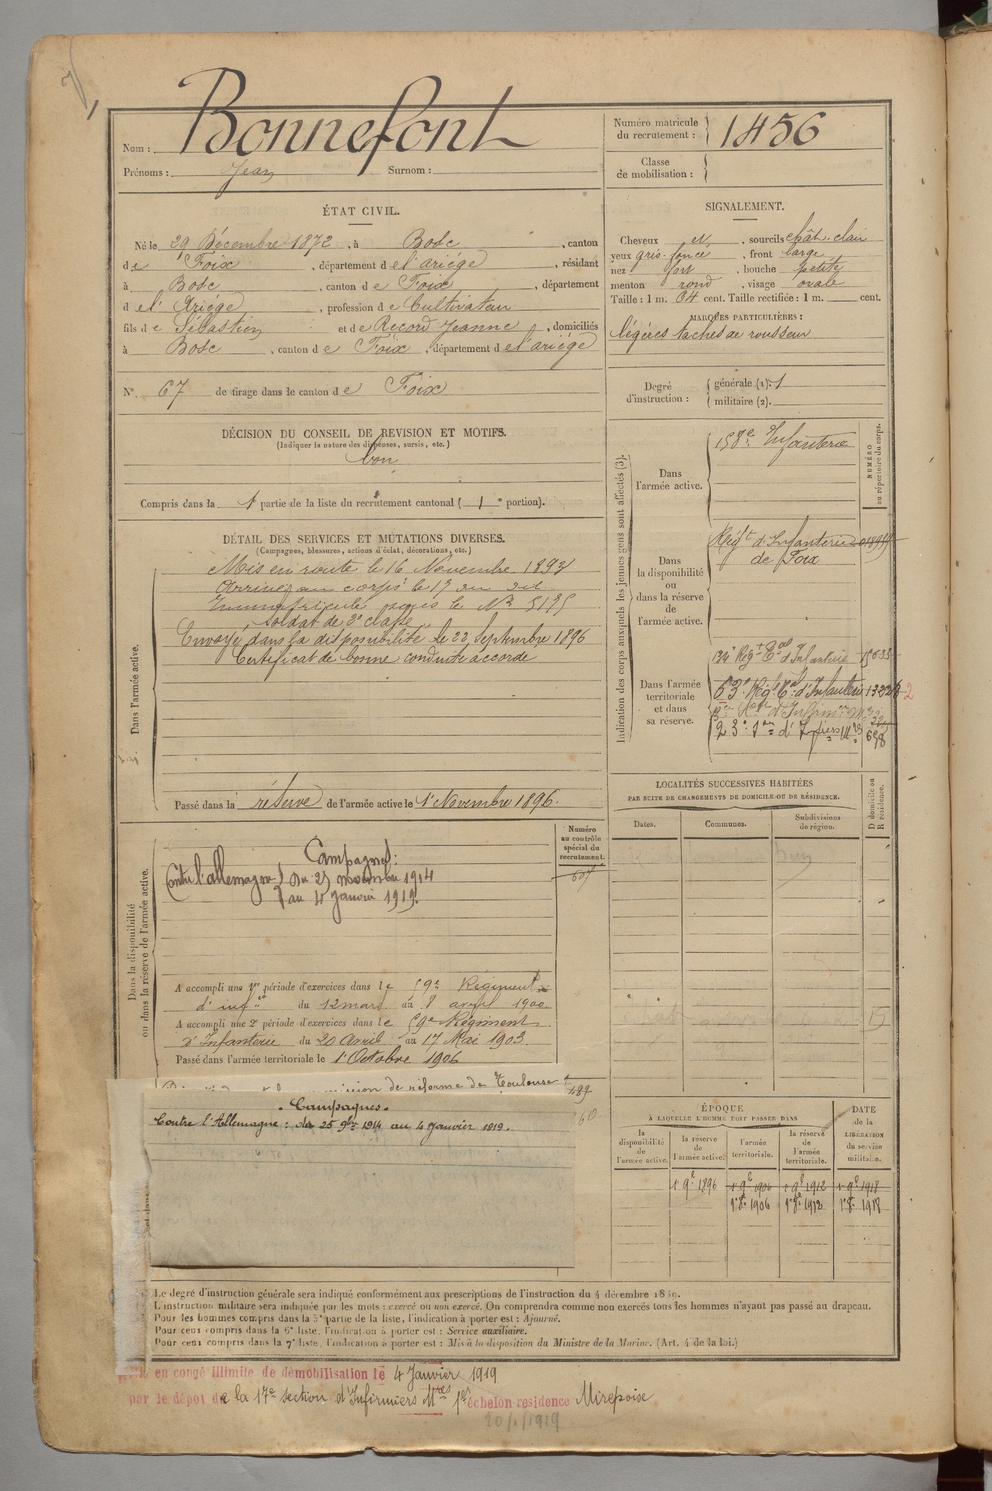 Nom : Bonnefont
Prénoms : Jean Surnom :
Numéro matricule du recrutement : 1456
Classe de mobilisation :
ÉTAT CIVIL.
Né le 29 Décembre 1872, à Bosc, canton
de Foix, département de l'ariége, résidant
à Bosc, canton de Foix, département
de l'Ariége, profession de Cultivateur
fils de Sébastien et de Record Jeanne, domiciliés
à Bosc, canton de Foix, département de l'ariége
N° 67 de tirage dans le canton de Foix
DÉCISION DU CONSEIL DE REVISION ET MOTIFS.
(Indiquer la nature des dispenses, sursis, etc.)
bon
Compris dans la 1e partie de la liste du recrutement cantonal ( 1e portion).
DÉTAIL DES SERVICES ET MUTATIONS DIVERSES.
(Campagnes, blessures, actions d'éclat, décorations, etc.)
Dans l'armée active.
Mis en route le 16 Novembre 1893
Arrivé au corps le 17 au dit
Immatriculé sous le N° 5195
soldat de 2e classe
Envoyé dans la disponibilité le 22 Septembre 1896
Certificat de bonne conduite accordé
Passé dans la réserve de l'armée active le 1er Novembre 1896.
Numéro au contrôle spécial du recrutement.
Dans la disponibilité ou dans la réserve de l'armée active.
Campagnes :
Contre l'allemagne } Du 25 novembre 1914
au 4 Janvier 1919.
A accompli une 1re période d'exercices dans le 59e Régiment
d'infie du 12 mars au 8 avril 1900.
A accompli une 2e période d'exercices dans le 59e Régiment
d'Infanterie du 20 Avril au 17 Mai 1903.
Passé dans l'armée territoriale le 1er Octobre 1906
de réforme de Toulouse
489
Campagnes.
Contre l'Allemagne : du 25 9bre 1914 au 4 Janvier 1919.
SIGNALEMENT.
Cheveux et, sourcils chât. clair
yeux gris foncé, front large
nez fort, bouche petite
menton rond, visage ovale
Taille : 1 m. 64 cent. Taille rectifiée : 1 m. cent.
MARQUES PARTICULIÈRES :
légères taches de rousseur
Degré d'instruction : générale (1): 1
militaire (2).
Indication des corps auxquels les jeunes gens sont affectés (3).
NUMÉRO au répertoire du corps.
Dans l'armée active.
158e Infanterie
Dans la disponibilité ou dans la réserve de l'armée active.
Régt d'Infanterie
de Foix
Dans l'armée territoriale et dans sa réserve.
134e Régt Eal d'Infanterie
63e Régt Eal d'Infanterie
698
LOCALITÉS SUCCESSIVES HABITÉES
PAR SUITE DE CHANGEMENTS DE DOMICILE OU DE RÉSIDENCE.
Dates. Communes. Subdivisions de région. D domicile ou R résidence.
ÉPOQUE
À LAQUELLE L'HOMME DOIT PASSER DANS
DATE de la LIBÉRATION du service militaire.
la disponibilité de l'armée active. la réserve de l'armée active. l'armée territoriale. la réserve de l'armée territoriale.
1er 9e 1896 1er 9e 1906 1er 9e 1912 1er 9e 1918
1er 8e 1906 1er 8e 1912 1er 8e 1918
Le degré d'instruction générale sera indiqué conformément aux prescriptions de l'instruction du 4 décembre 1889.
L'instruction militaire sera indiquée par les mots : exercé ou non exercé. On comprendra comme non exercés tous les hommes n'ayant pas passé au drapeau.
Pour les hommes compris dans la 5e partie de la liste, l'indication à porter est : Ajourné.
Pour ceux compris dans la 6e liste, l'indication à porter est : Service auxiliaire.
Pour ceux compris dans la 7e liste, l'indication à porter est : Mis à la disposition du Ministre de la Marine. (Art. 4 de la loi.)
en congé illimité de démobilisation le 4 Janvier 1919
par le dépôt de la 17e section d'Infirmiers Mres 1er échelon residence Mirepoix